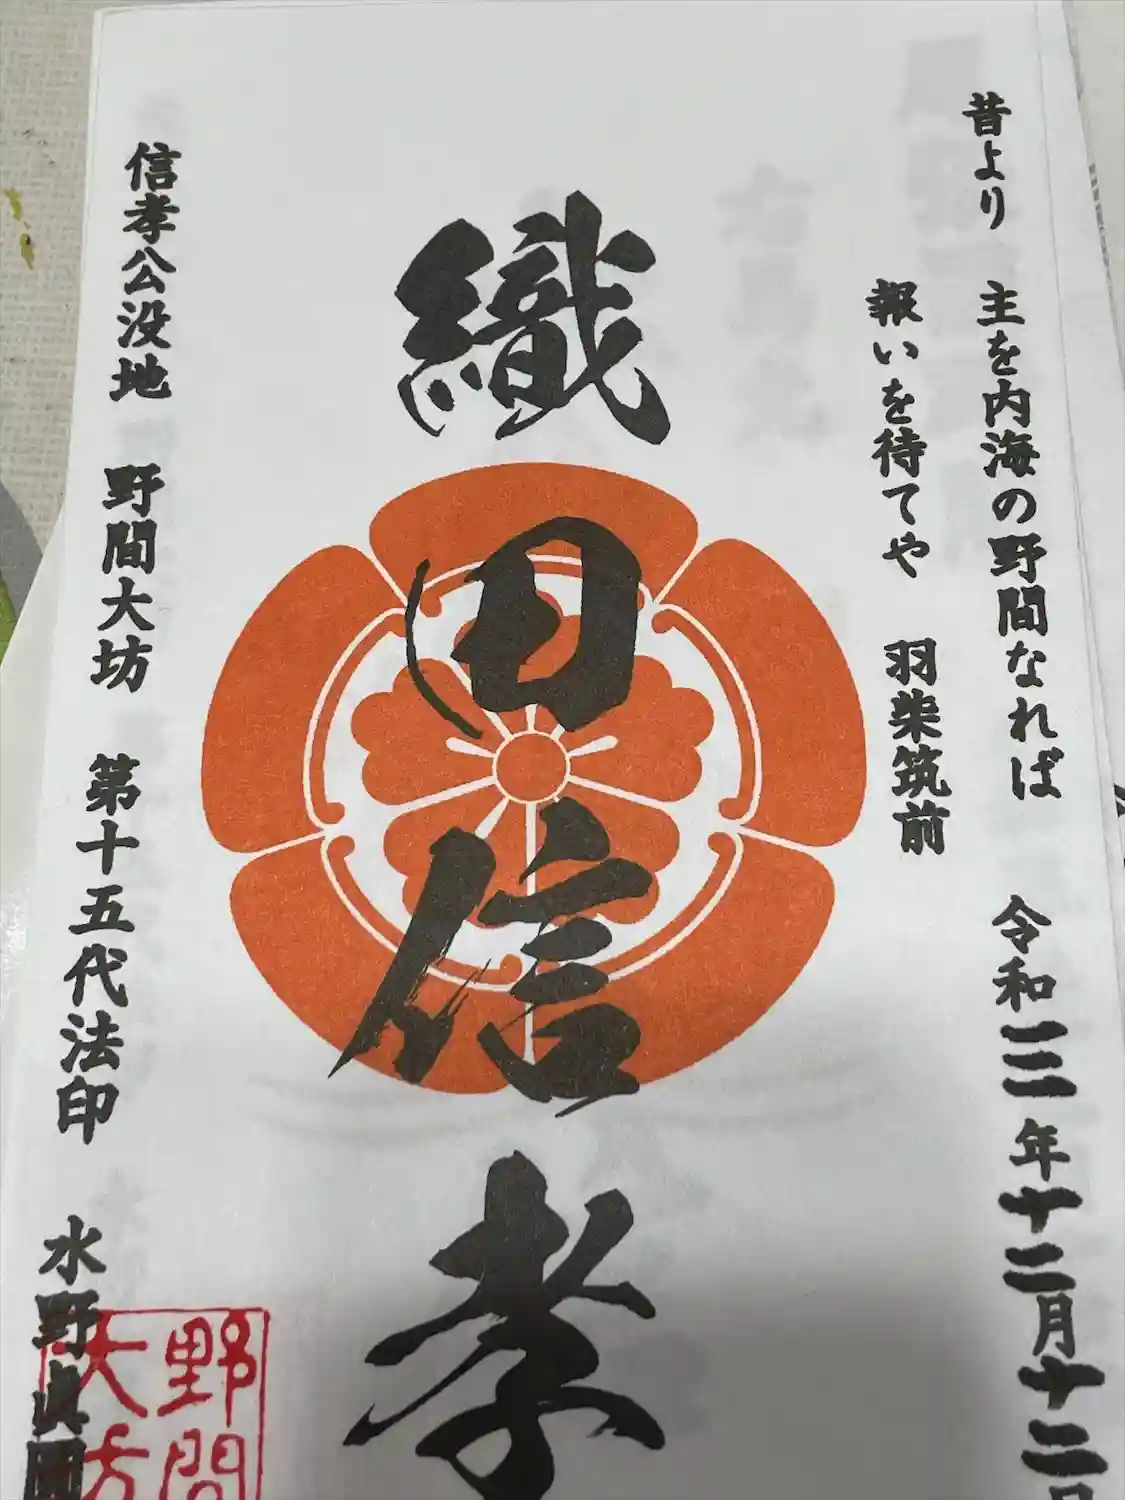 昔より 主を内海の野間なれば
報いを待てや 羽柴筑前
令和三年十二月十二日
織田信孝
信孝公没地 野間大坊 第十五代法印 水野真圓
野間
大坊